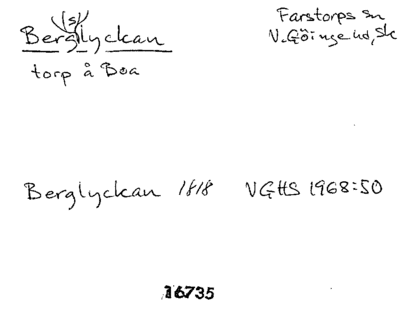 Berg(s)lyckan
torp å Boa
Farstorps sn
V. Göinge hd, Sk
Berglyckan 1818 VGHS 1968:50
16735